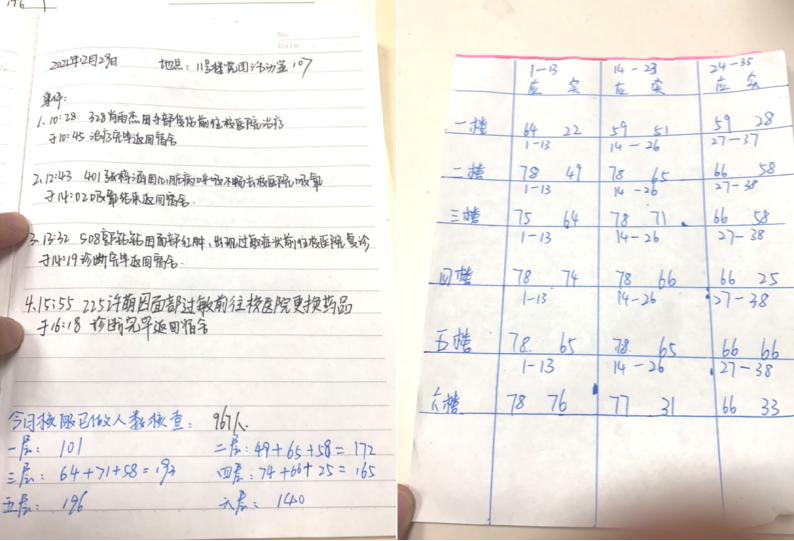 No.
Date
2021年12月29日 地点：11号楼党团活动室107
事件：
1.10:28 328肖雨杰因手部受伤前往校医院治疗
于10:45 治疗完毕返回宿舍
2.12:43 401张梓涵因心脏病呼吸不畅去校医院吸氧
于14:02吸氧结束返回宿舍.
3.13:32 508郭钻钻因面部红肿、出现过敏症状前往校医院复诊
于14:19诊断完毕返回宿舍.
4.15:55 225许萌因面部过敏前往校医院更换药品
于16:18 诊断完毕返回宿舍
今日核酸已做人数核查： 967人.
一层： 101 二层：49+65+58=172
三层： 64+71+58=193 四层：74+66+25=165
五层： 196 六层： 140
1-13 14-23 24-35
应 实 应 实 应 实
一楼 64 22 59 51 59 28
1-13 14-26 27-37
二楼 78 49 78 65 66 58
1-13 14-26 27-38
三楼 75 64 78 71 66 58
1-13 14-26 27-38
四楼 78 74 78 66 66 25
1-13 14-26 27-38
五楼 78 65 78 65 66 66
1-13 14-26 27-38
六楼 78 76 77 31 66 33